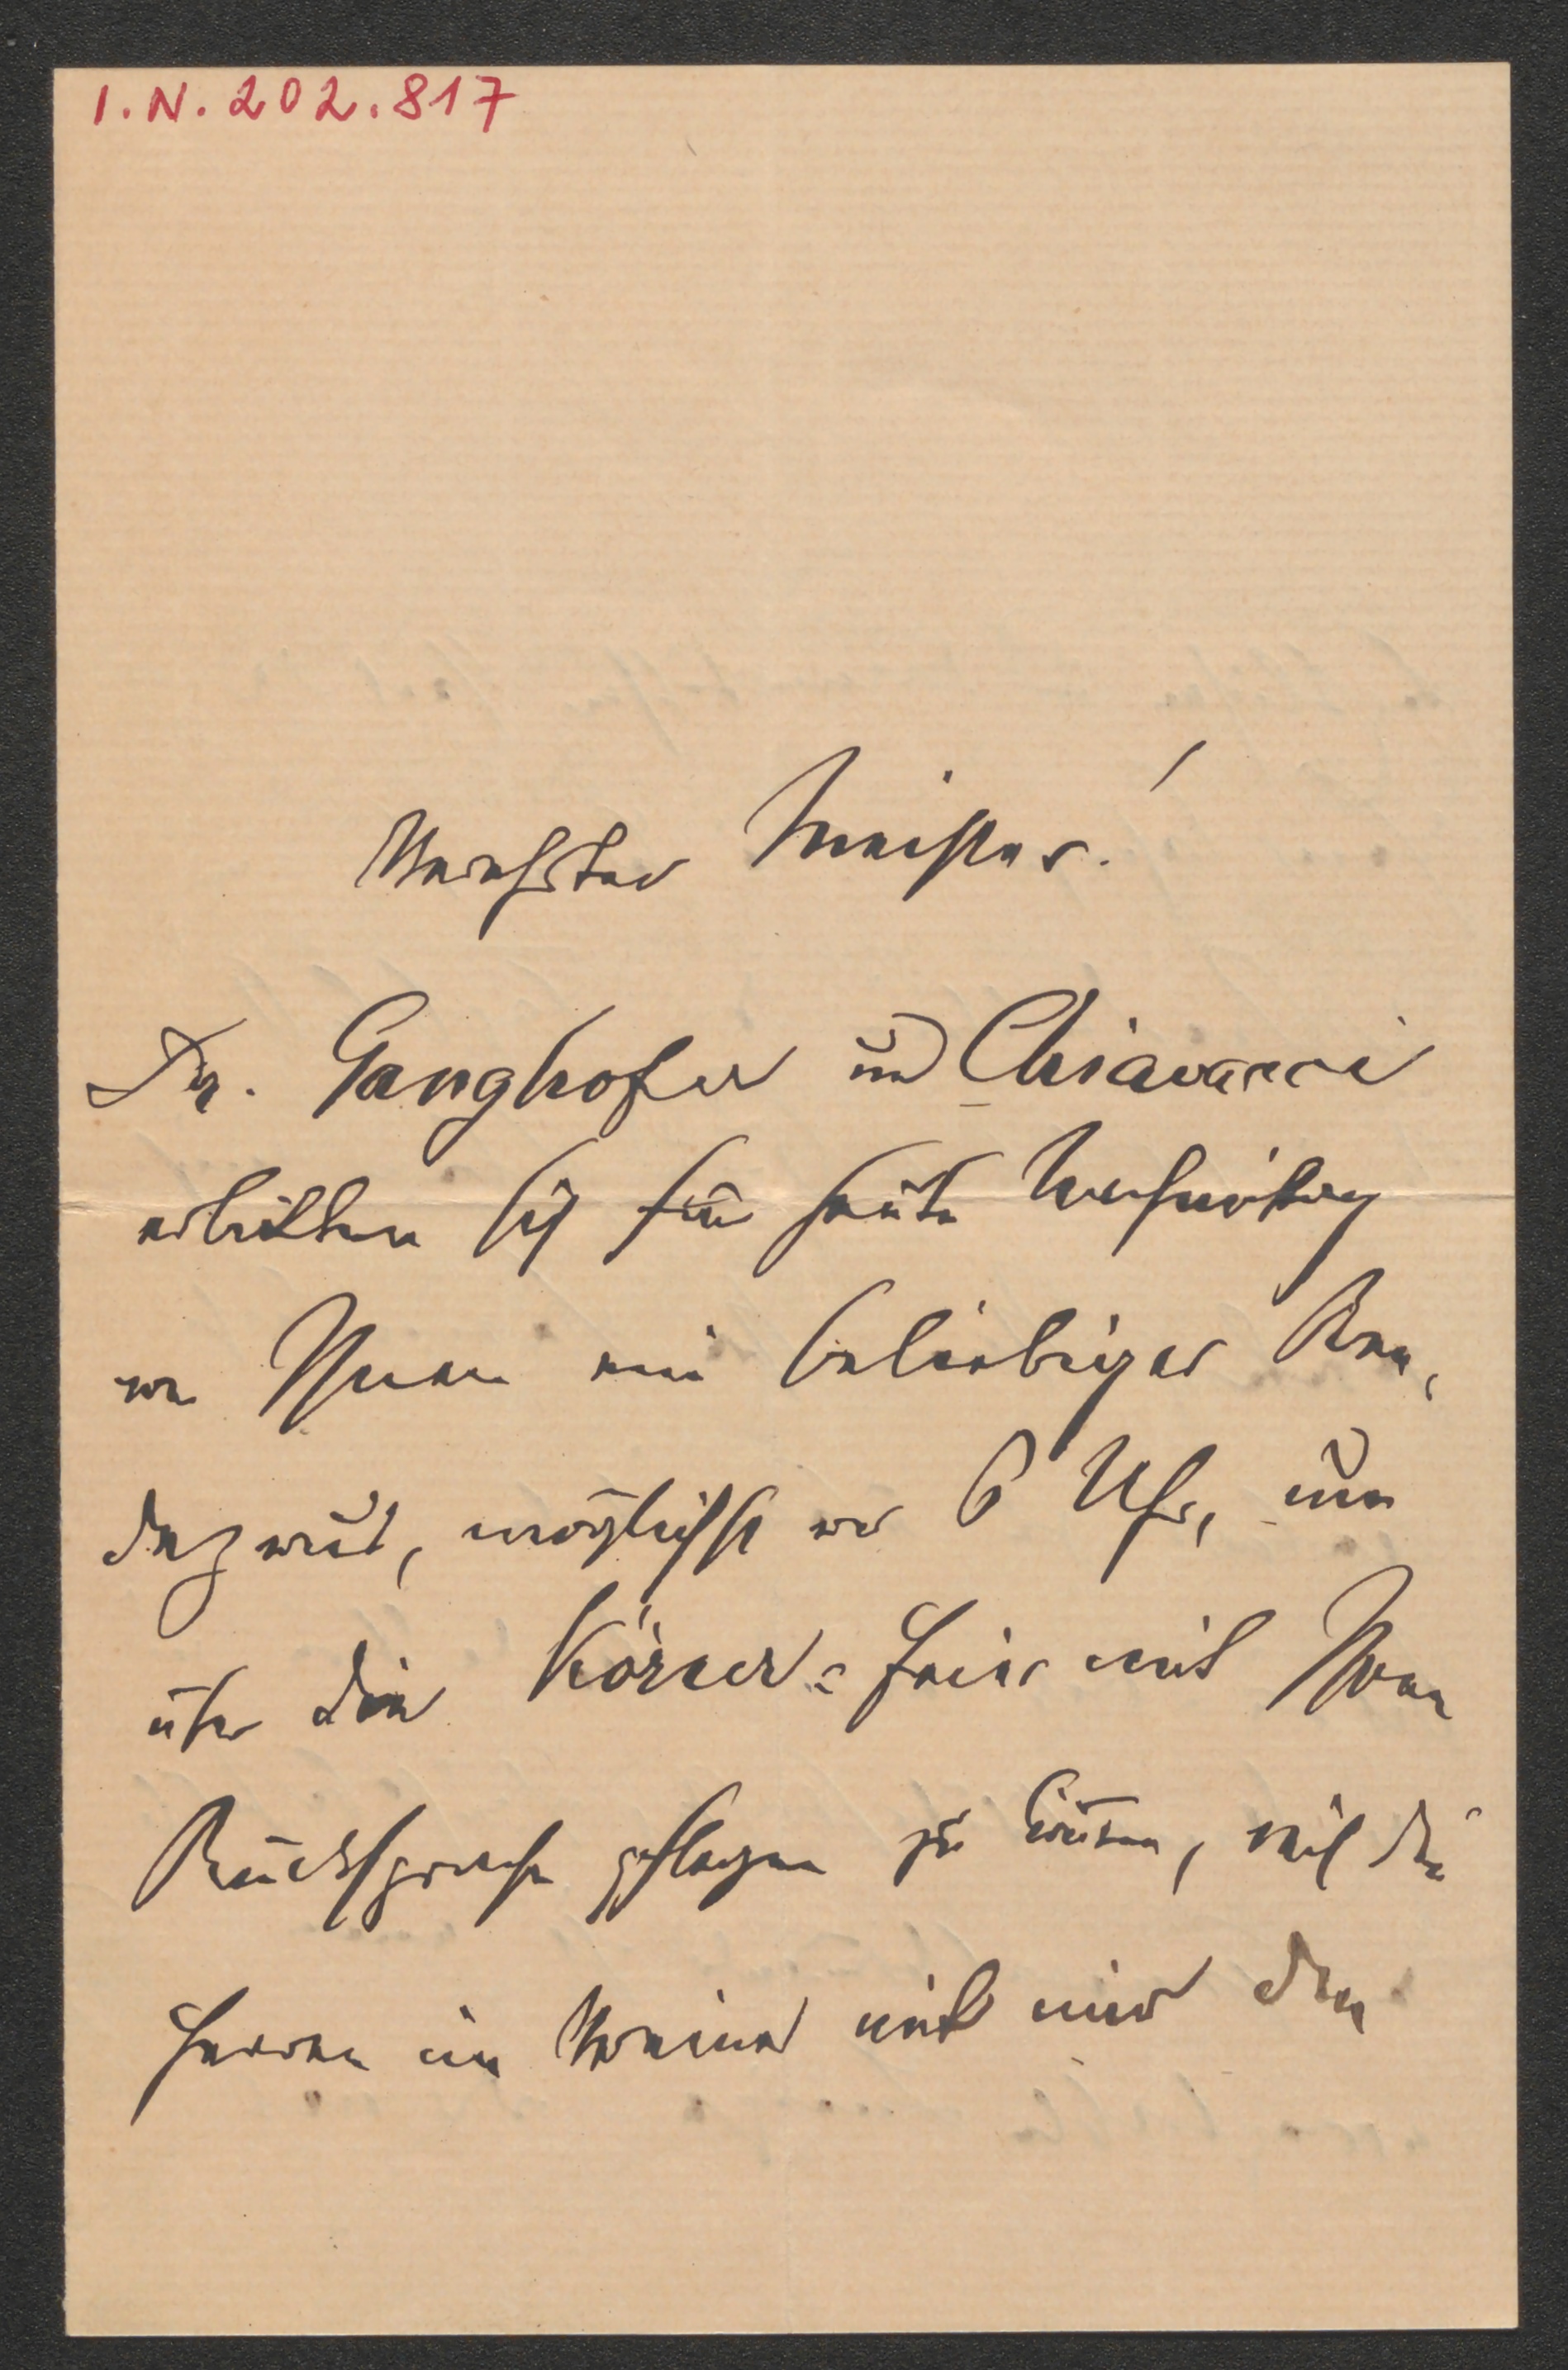 I.N. 202.817
Verehrter Meister!
Dr. Ganghofer und Chiavacci
erbitten sich für heute Nachmittag
von Ihnen ein beliebiges Ren,
dezvous, möglichst vor 6 Uhr, um
über die Körner-Feier mit Ihnen
Rücksprache pflegen zu können, weil die
Herren im Vereine mit mir den